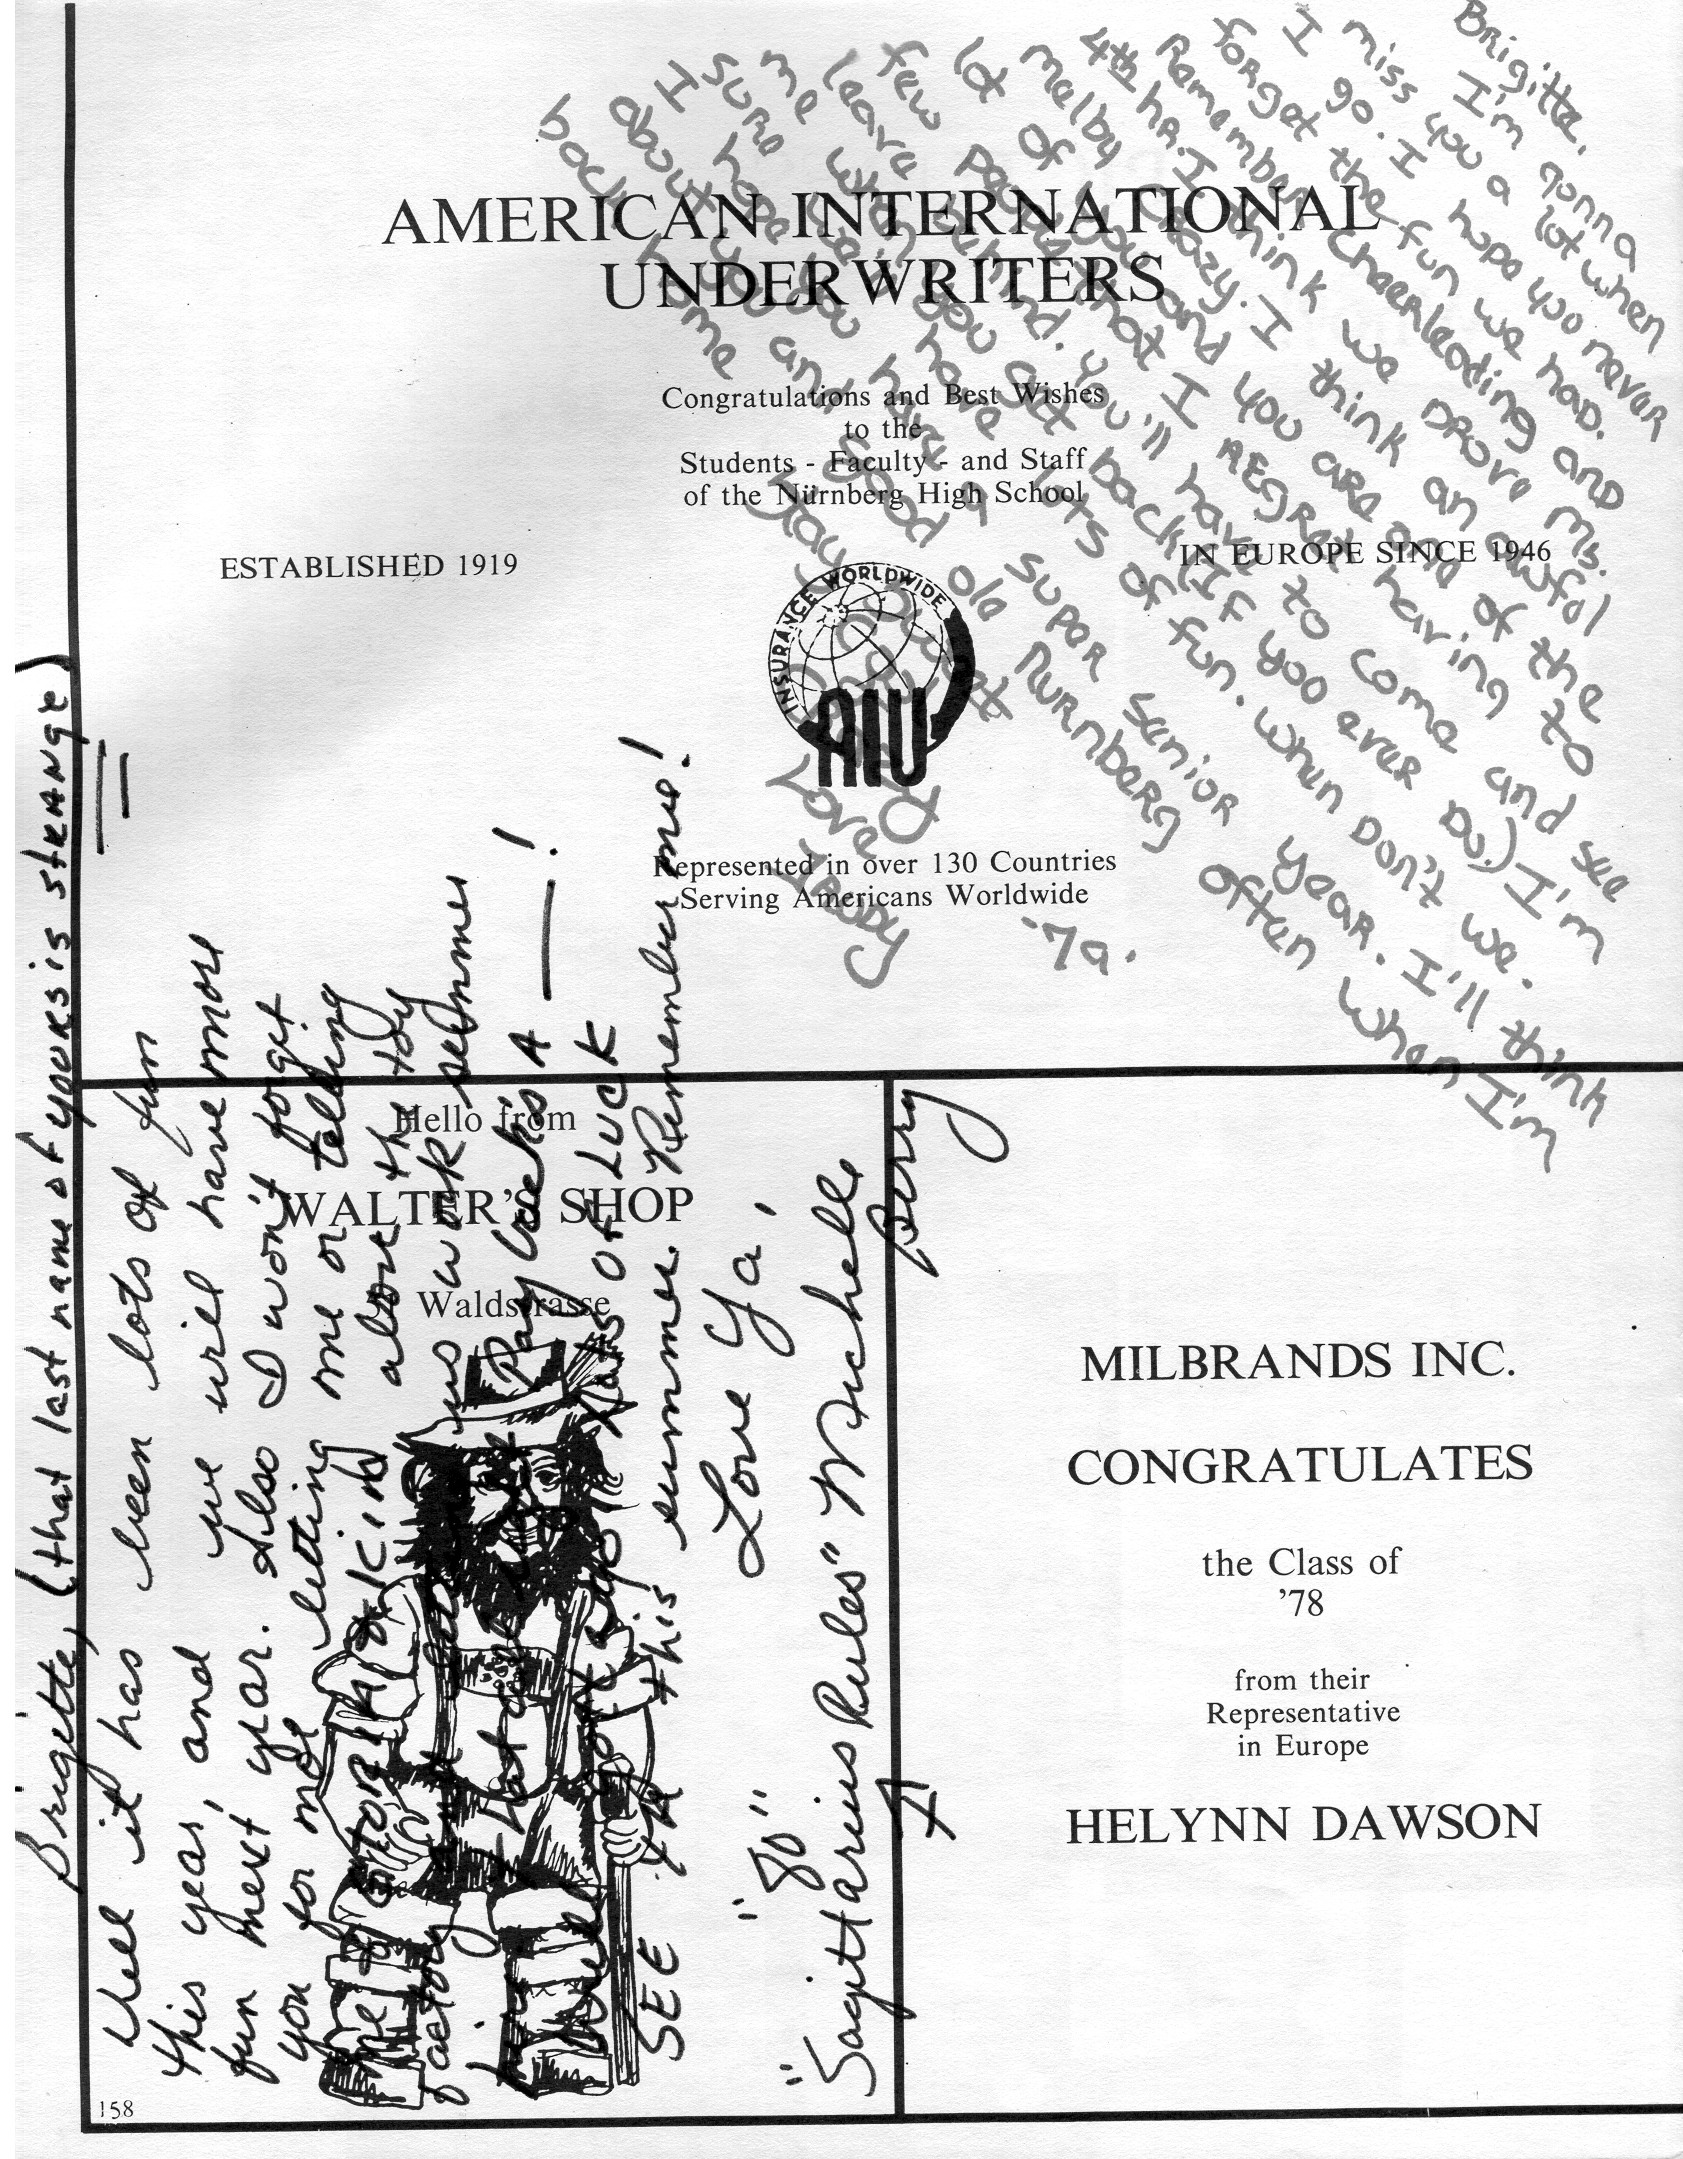 AMERICAN INTERNATIONAL
UNDERWRITERS
Congratulations and Best Wishes
to the
Students - Faculty - and Staff
of the Nürnberg High School
ESTABLISHED 1919
IN EUROPE SINCE 1946
INSURANCE WORLDWIDE
AIU
Represented in over 130 Countries
Serving Americans Worldwide
Brigitte,
I'm gonna
miss you a lot when
I go. I hope you never
forget the fun we had.
Remember cheerleading and
4th hr. I think we Drove Ms.
Malby crazy. I think an awful
lot of you and you are one of the
few people that I REgRet having to
leave behind. You'll have to come and see
me when you get back (If you ever Do.) I'm
sure we'll have lots of fun. When Don't we.
I hope you have a super senior year. I'll think
about you and good ole Nurnberg often when I'm
back home
Stay Sweet
Love
Tracy
'79.
Brigitte, (that last name of yours is strange)
Well it has been lots of fun
this year, and we will have more
fun next year. Also I won't forget
you for not letting me or telling
me for about the toy
factory us work summer
Pay Week's A — !
Lots of Luck
SEE YA this summer. Remember me!
Love Ya,
"80"
"Sagittarius Rules" Michelle
Berry
Hello from
WALTER'S SHOP
Waldstrasse
MILBRANDS INC.
CONGRATULATES
the Class of
'78
from their
Representative
in Europe
HELYNN DAWSON
158